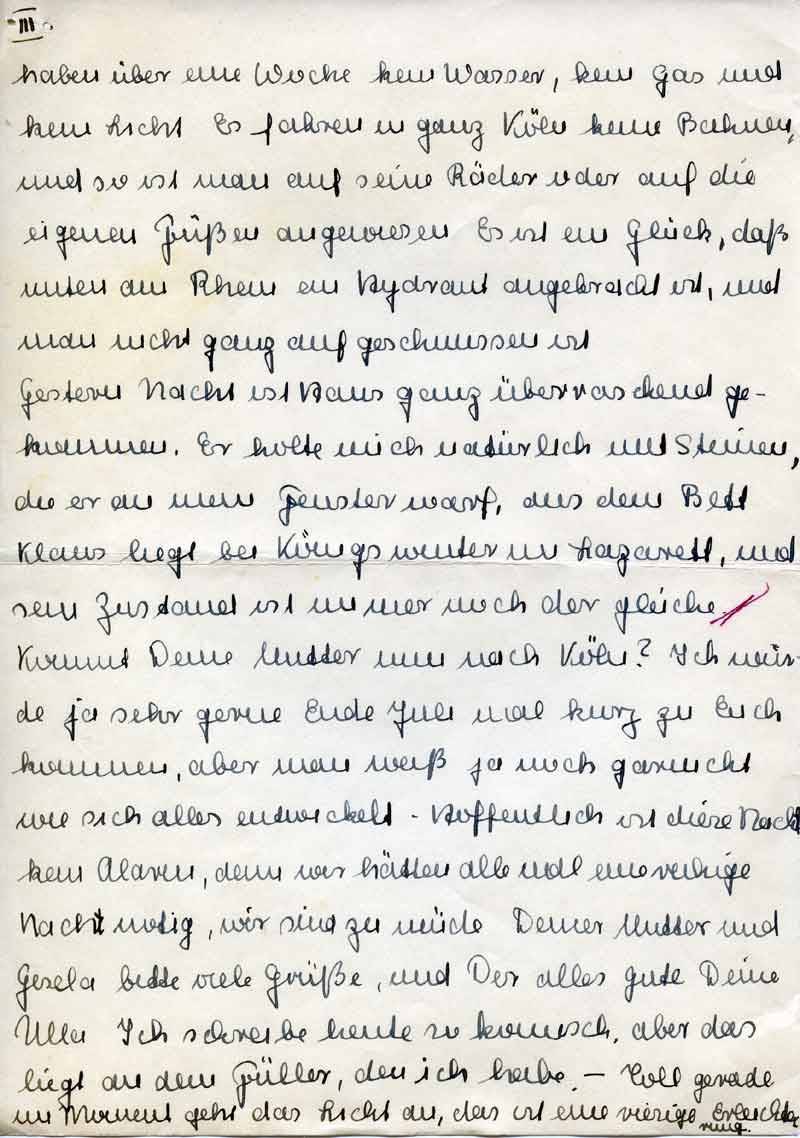 III.
haben über eine Woche kein Wasser, kein Gas und
kein Licht Es fahren in ganz Köln keine Bahnen,
und so ist man auf seine Räder oder auf die
eigenen Füßen angewiesen Es ist ein Glück, daß
unten am Rhein ein Hydrant angebracht ist, und
man nicht ganz aufgeschmissen ist
Gestern Nacht ist Haus ganz überraschend ge-
kommen. Er holte mich natürlich mit Steinen,
die er an mein Fenster warf, aus dem Bett
Klaus liegt bei Königswinter im Lazarett, und
sein Zustand ist immer noch der gleiche
Kommt Deine Mutter nun nach Köln? Ich wür-
de ja sehr gerne Ende Juli mal kurz zu Euch
kommen, aber man weiß ja noch garnicht
wie sich alles entwickelt - Hoffentlich ist diese Nacht
kein Alarm, denn wir hätten alle mal eine ruhige
Nacht nötig, wir sind zu müde Deiner Mutter und
Gisela bitte viele Grüße, und Dir alles gute Deine
Ulla Ich schreibe heute so komisch, aber das
liegt an dem Füller, den ich habe. – Toll gerade
im Moment geht das Licht an, das ist eine riesige Erleichte
rung.